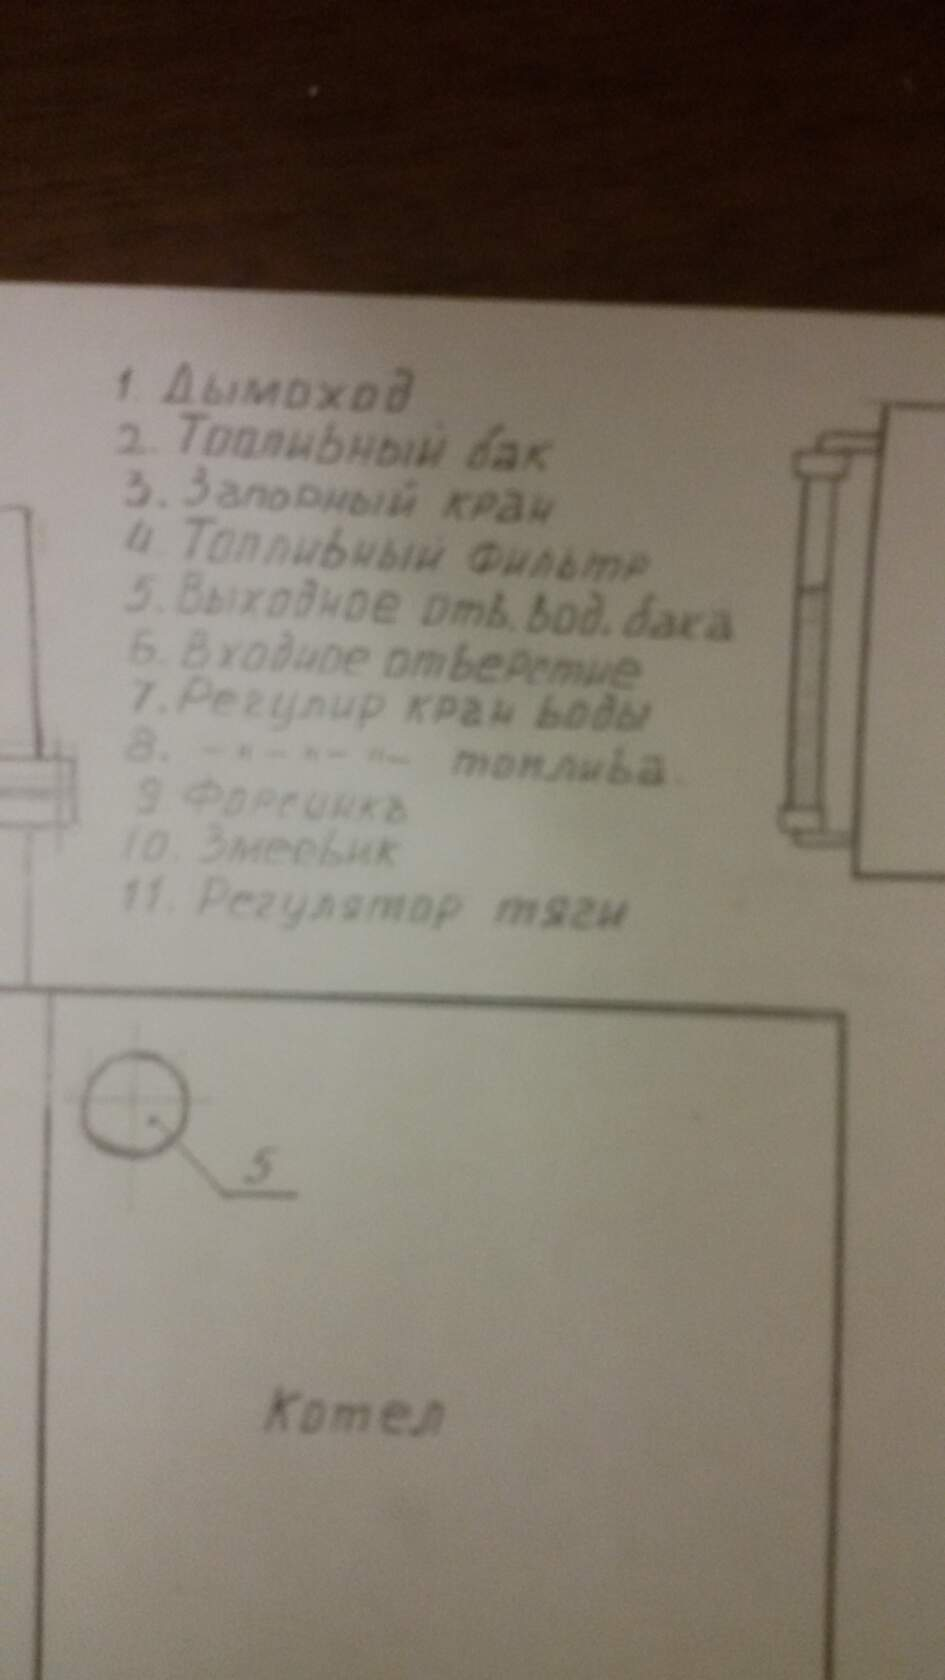 1. Дымоход
2. Топливный бак
3. Запорный кран
4 Топливный Фильтр
5. Выходное отв. вод. бака
6. Входное отверстие
7. Регулир кран воды
8. -"-"-"- топлива.
9 Форсунка
10. Змеевик
11. Регулятор тяги
5
Котел